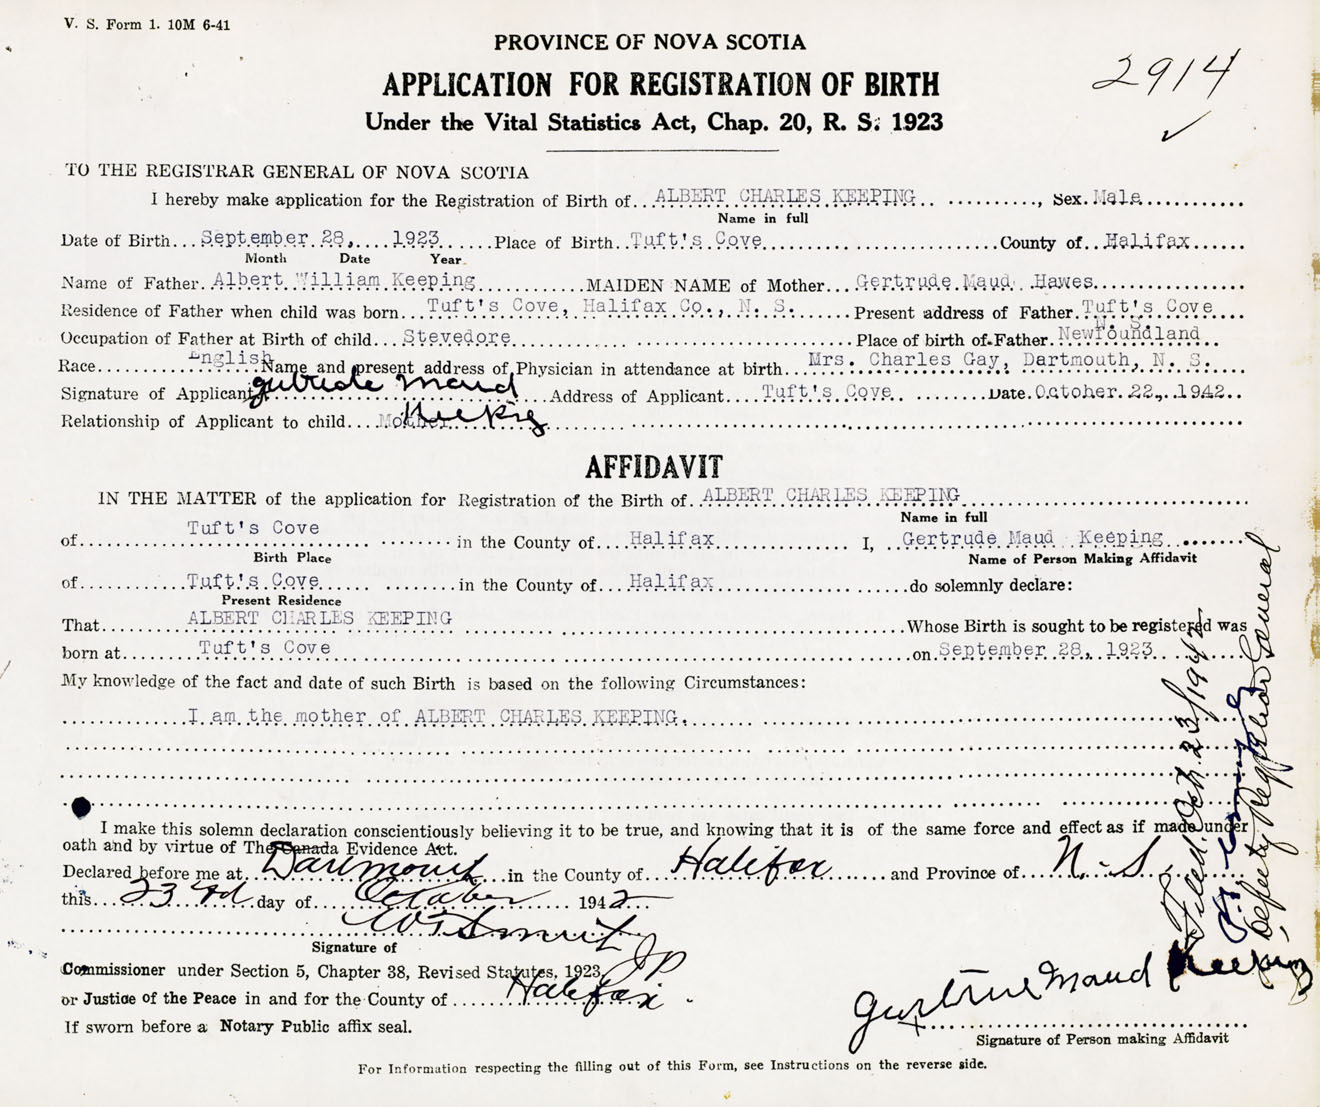 V. S. Form 1. 10M 6-41
PROVINCE OF NOVA SCOTIA
2914
APPLICATION FOR REGISTRATION OF BIRTH
Under the Vital Statistics Act, Chap. 20, R. S. 1923
TO THE REGISTRAR GENERAL OF NOVA SCOTIA
I hereby make application for the Registration of Birth of ALBERT CHARLES KEEPING, Sex. Male
Name in full
Date of Birth September 28, 1923 Place of Birth Tuft's Cove County of Halifax
Month Date Year
Name of Father Albert William Keeping MAIDEN NAME of Mother Gertrude Maud Hawes
Residence of Father when child was born Tuft's Cove, Halifax Co., N. S. Present address of Father Tuft's Cove
N. S.
Occupation of Father at Birth of child Stevedore Place of birth of Father Newfoundland
Race English Name and present address of Physician in attendance at birth Mrs. Charles Gay, Dartmouth, N. S.
Signature of Applicant Gutrude Maud Address of Applicant Tuft's Cove Date October 22, 1942
Keeping
Relationship of Applicant to child Mother
AFFIDAVIT
IN THE MATTER of the application for Registration of the Birth of ALBERT CHARLES KEEPING
Name in full
of Tuft's Cove in the County of Halifax I, Gertrude Maud Keeping
Birth Place Name of Person Making Affidavit
of Tuft's Cove in the County of Halifax do solemnly declare:
Present Residence
That ALBERT CHARLES KEEPING Whose Birth is sought to be registered was
born at Tuft's Cove on September 28, 1923
My knowledge of the fact and date of such Birth is based on the following Circumstances:
I am the mother of ALBERT CHARLES KEEPING.
I make this solemn declaration conscientiously believing it to be true, and knowing that it is of the same force and effect as if made under
oath and by virtue of The Canada Evidence Act.
Declared before me at Dartmouth in the County of Halifax and Province of N. S.
this 23rd day of October 1942
Signature of
J P
Commissioner under Section 5, Chapter 38, Revised Statutes, 1923,
or Justice of the Peace in and for the County of Halifax
If sworn before a Notary Public affix seal.
Maud Keeping
Signature of Person making Affidavit
For Information respecting the filling out of this Form, see Instructions on the reverse side.
Filed Oct. 23/1942
Deputy Registrar General